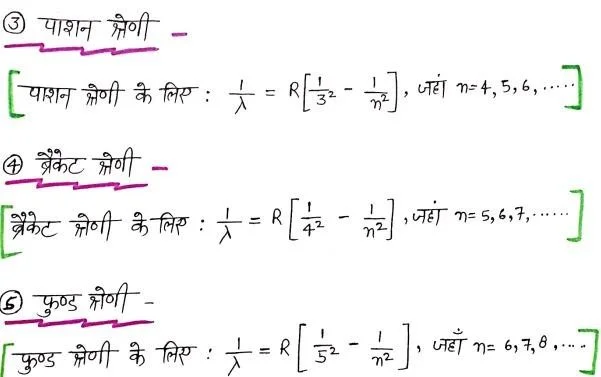 ③ पाशन श्रेणी -
[पाशन श्रेणी के लिए : 1/λ = R[1/3² - 1/n²], जहां n=4,5,6,.....]
④ ब्रैकेट श्रेणी -
[ब्रैकेट श्रेणी के लिए : 1/λ = R[1/4² - 1/n²], जहां n=5,6,7,......]
⑤ फुण्ड श्रेणी -
[फुण्ड श्रेणी के लिए : 1/λ = R[1/5² - 1/n²], जहाँ n=6,7,8,....]